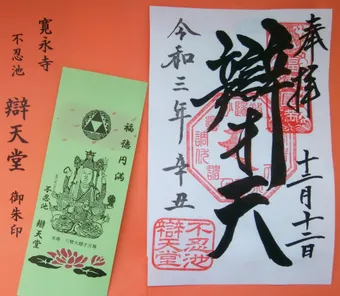 奉拝
辯才天
十二月十二日
令和三年辛丑
不忍池
辯天堂
寛永寺
不忍池
辯天堂
御朱印
福徳円満
不忍池
辯天堂